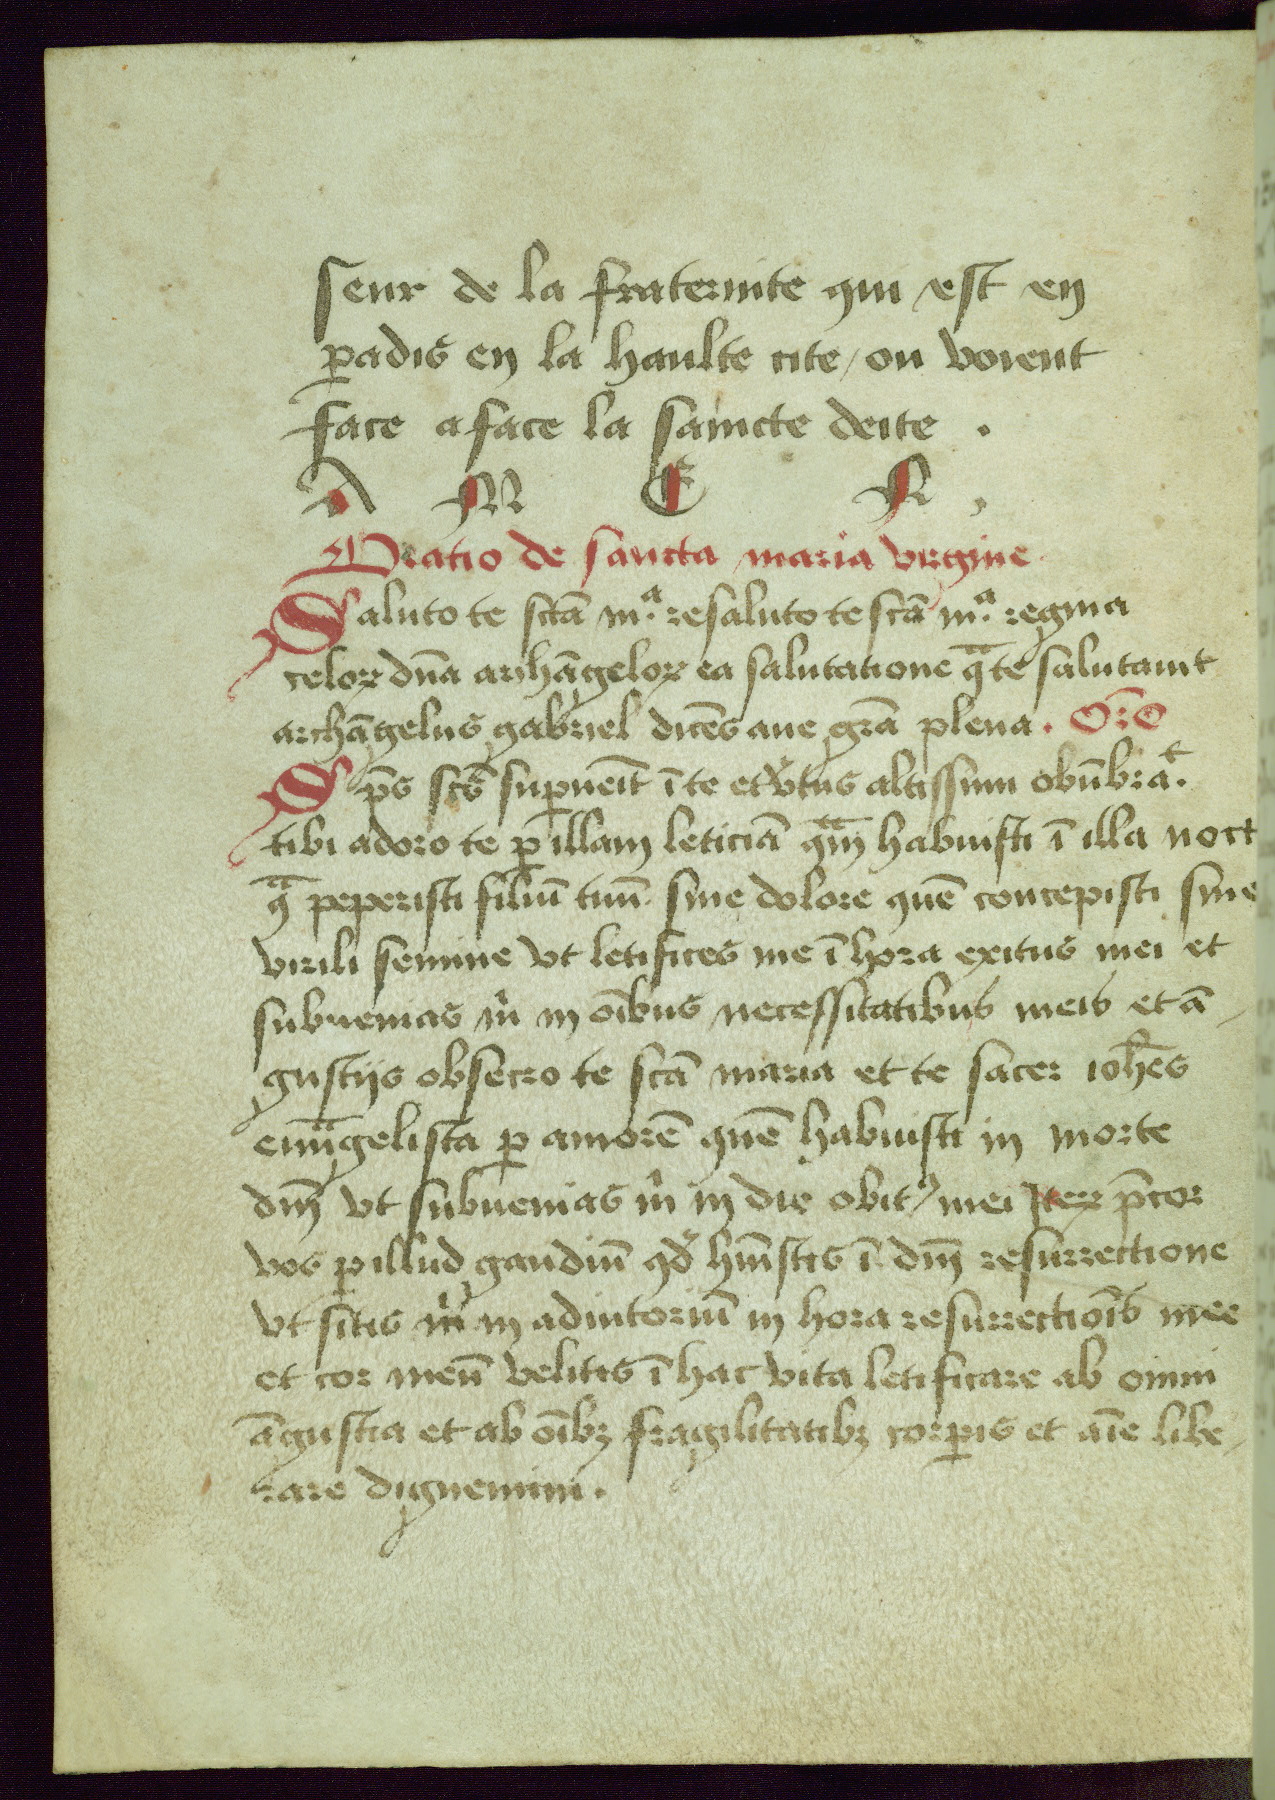 seur de la fraternite qui est en
p̲adis en la haulte cite / ou voient
face a face la saincte deite .
A M E N .
Oratio de sancta maria virgine
Saluto te sctā mᵃ. resaluto te scā mᵃ. regina
celoꝝ dn̄a archāgeloꝝ ea salutatione qͣ te salutauit
archāgelus gabriel dicēs aue grā plena . Orō
Sp̄s scs̄ supueīt ī te et v̓tus altissimi obūbraᵗ.
tibi adoro te ꝑ illam leticiā qͣm̄ habuisti ī illa noct
qͣ peperisti filiū tuū sine dolore quē concepisti sine
virili semine vt letifices me ī hora exitus mei et
subuenias m̄ in oībus necessitatibus meis et ā /
gustijs obsecro te scā maria et te sacer ioh̄es
euuāgelista ꝑ amorē quē habuisti in morte
dn̄i vt subuenias m̄ in die obitꝰ mei Iteꝝ p̄cor
vos ꝑ illud gaudiū qd̓ huīstis ī dn̄i resurrectione
vt sitis m̄ in adiutoriū in hora resurrectiōis mee
et cor meū velitis ī hac vita letificare ab omni
āgustia et ab oībꝫ fragilitatibꝫ corꝑis et aīe libe /
rare dignemini .